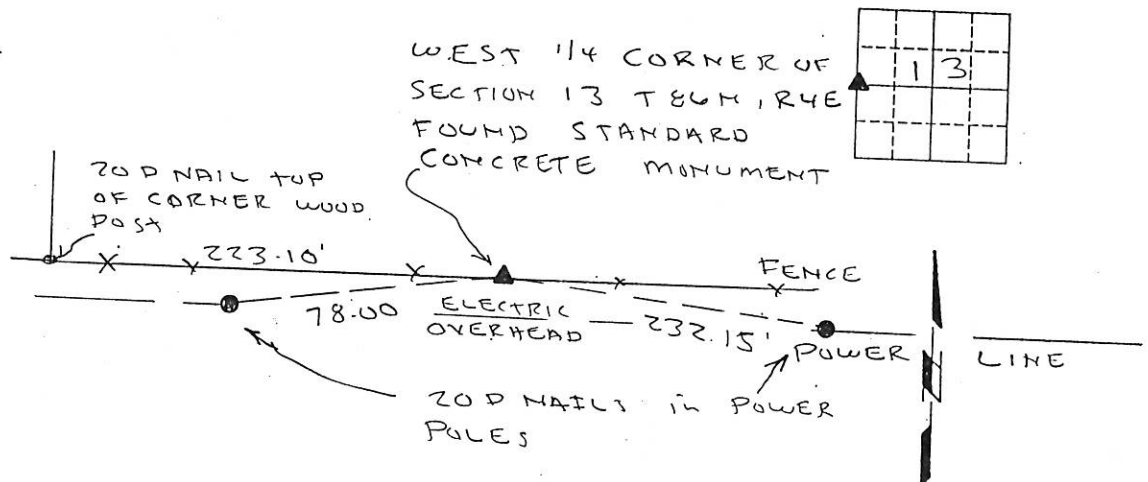 WEST 1/4 CORNER OF
SECTION 13 T26N, R4E
FOUND STANDARD
CONCRETE MONUMENT
13
20 D NAIL TOP
OF CORNER WOOD
POST
223.10'
FENCE
78.00
ELECTRIC
OVERHEAD
232.15'
POWER
LINE
N
20 D NAILS in POWER
POLES